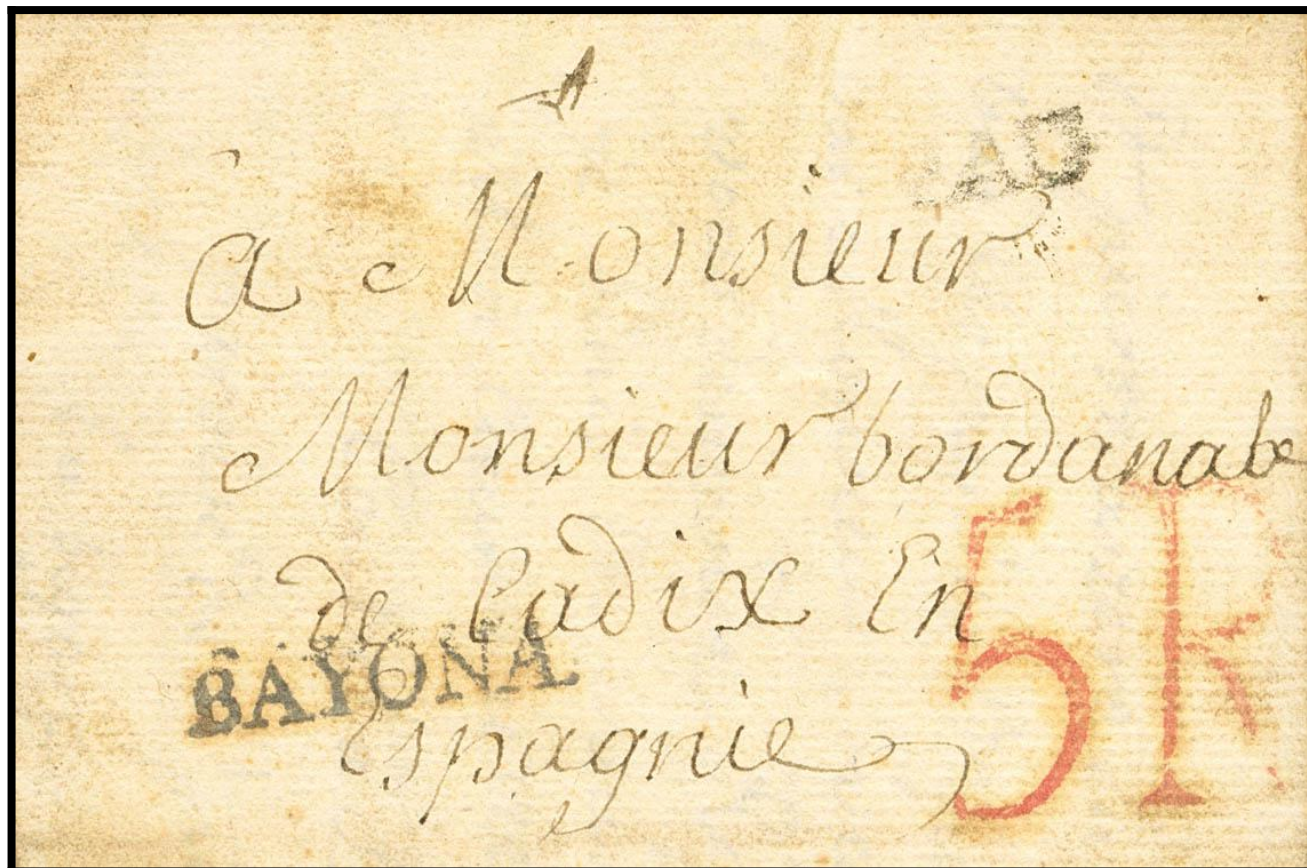 à Monsieur
Monsieur bordanabe
de Cadix En
BAYONA
Espagnie
5R